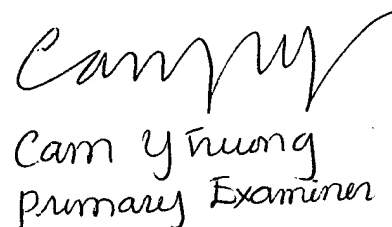 Cam Y
Cam Y Truong
Primary Examiner